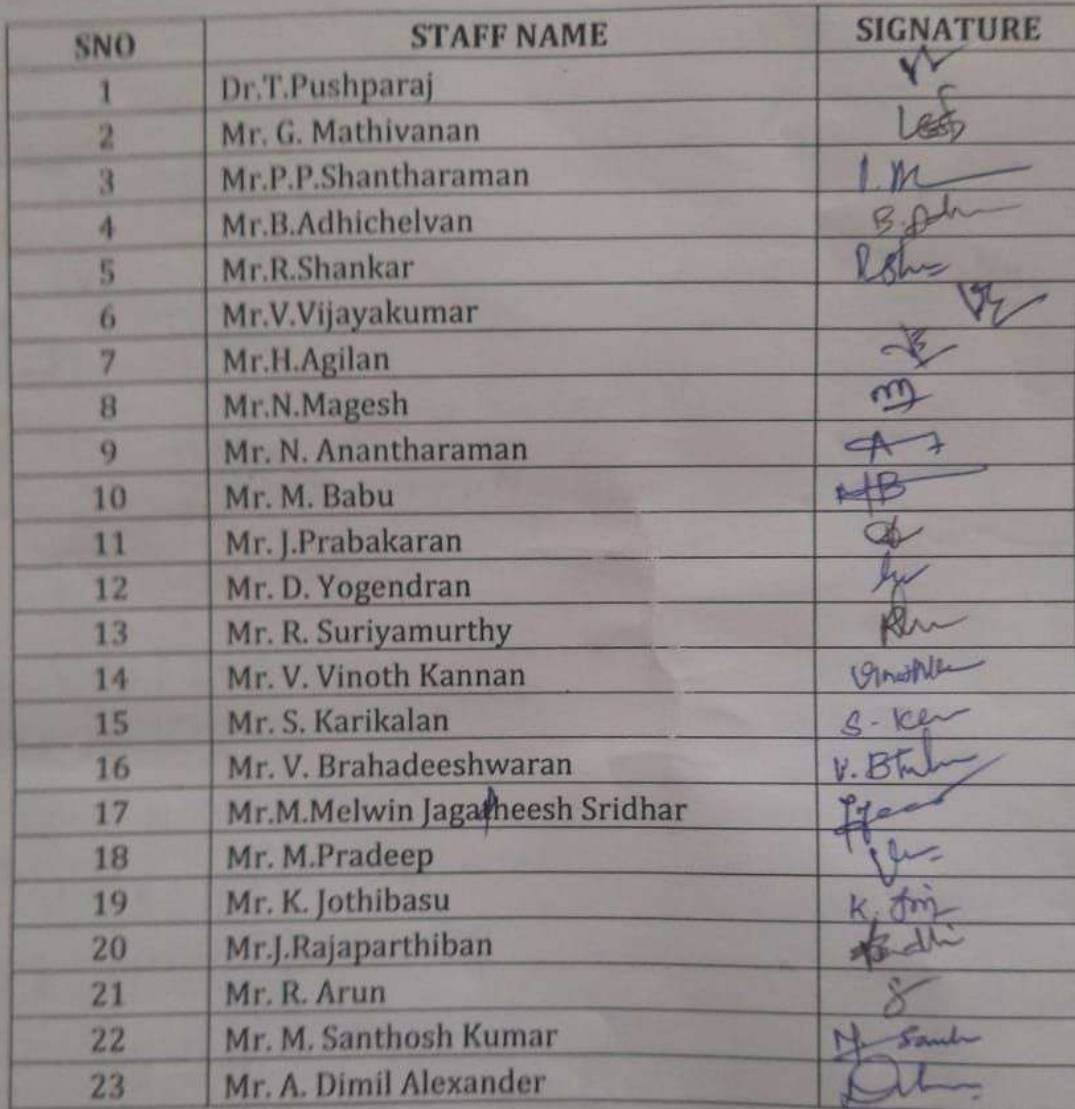 SNO STAFF NAME SIGNATURE
1 Dr.T.Pushparaj
2 Mr. G. Mathivanan
3 Mr.P.P.Shantharaman
4 Mr.B.Adhichelvan
5 Mr.R.Shankar
6 Mr.V.Vijayakumar
7 Mr.H.Agilan
8 Mr.N.Magesh
9 Mr. N. Anantharaman
10 Mr. M. Babu
11 Mr. J.Prabakaran
12 Mr. D. Yogendran
13 Mr. R. Suriyamurthy
14 Mr. V. Vinoth Kannan
15 Mr. S. Karikalan
16 Mr. V. Brahadeeshwaran
17 Mr.M.Melwin Jagatheesh Sridhar
18 Mr. M.Pradeep
19 Mr. K. Jothibasu
20 Mr.J.Rajaparthiban
21 Mr. R. Arun
22 Mr. M. Santhosh Kumar
23 Mr. A. Dimil Alexander